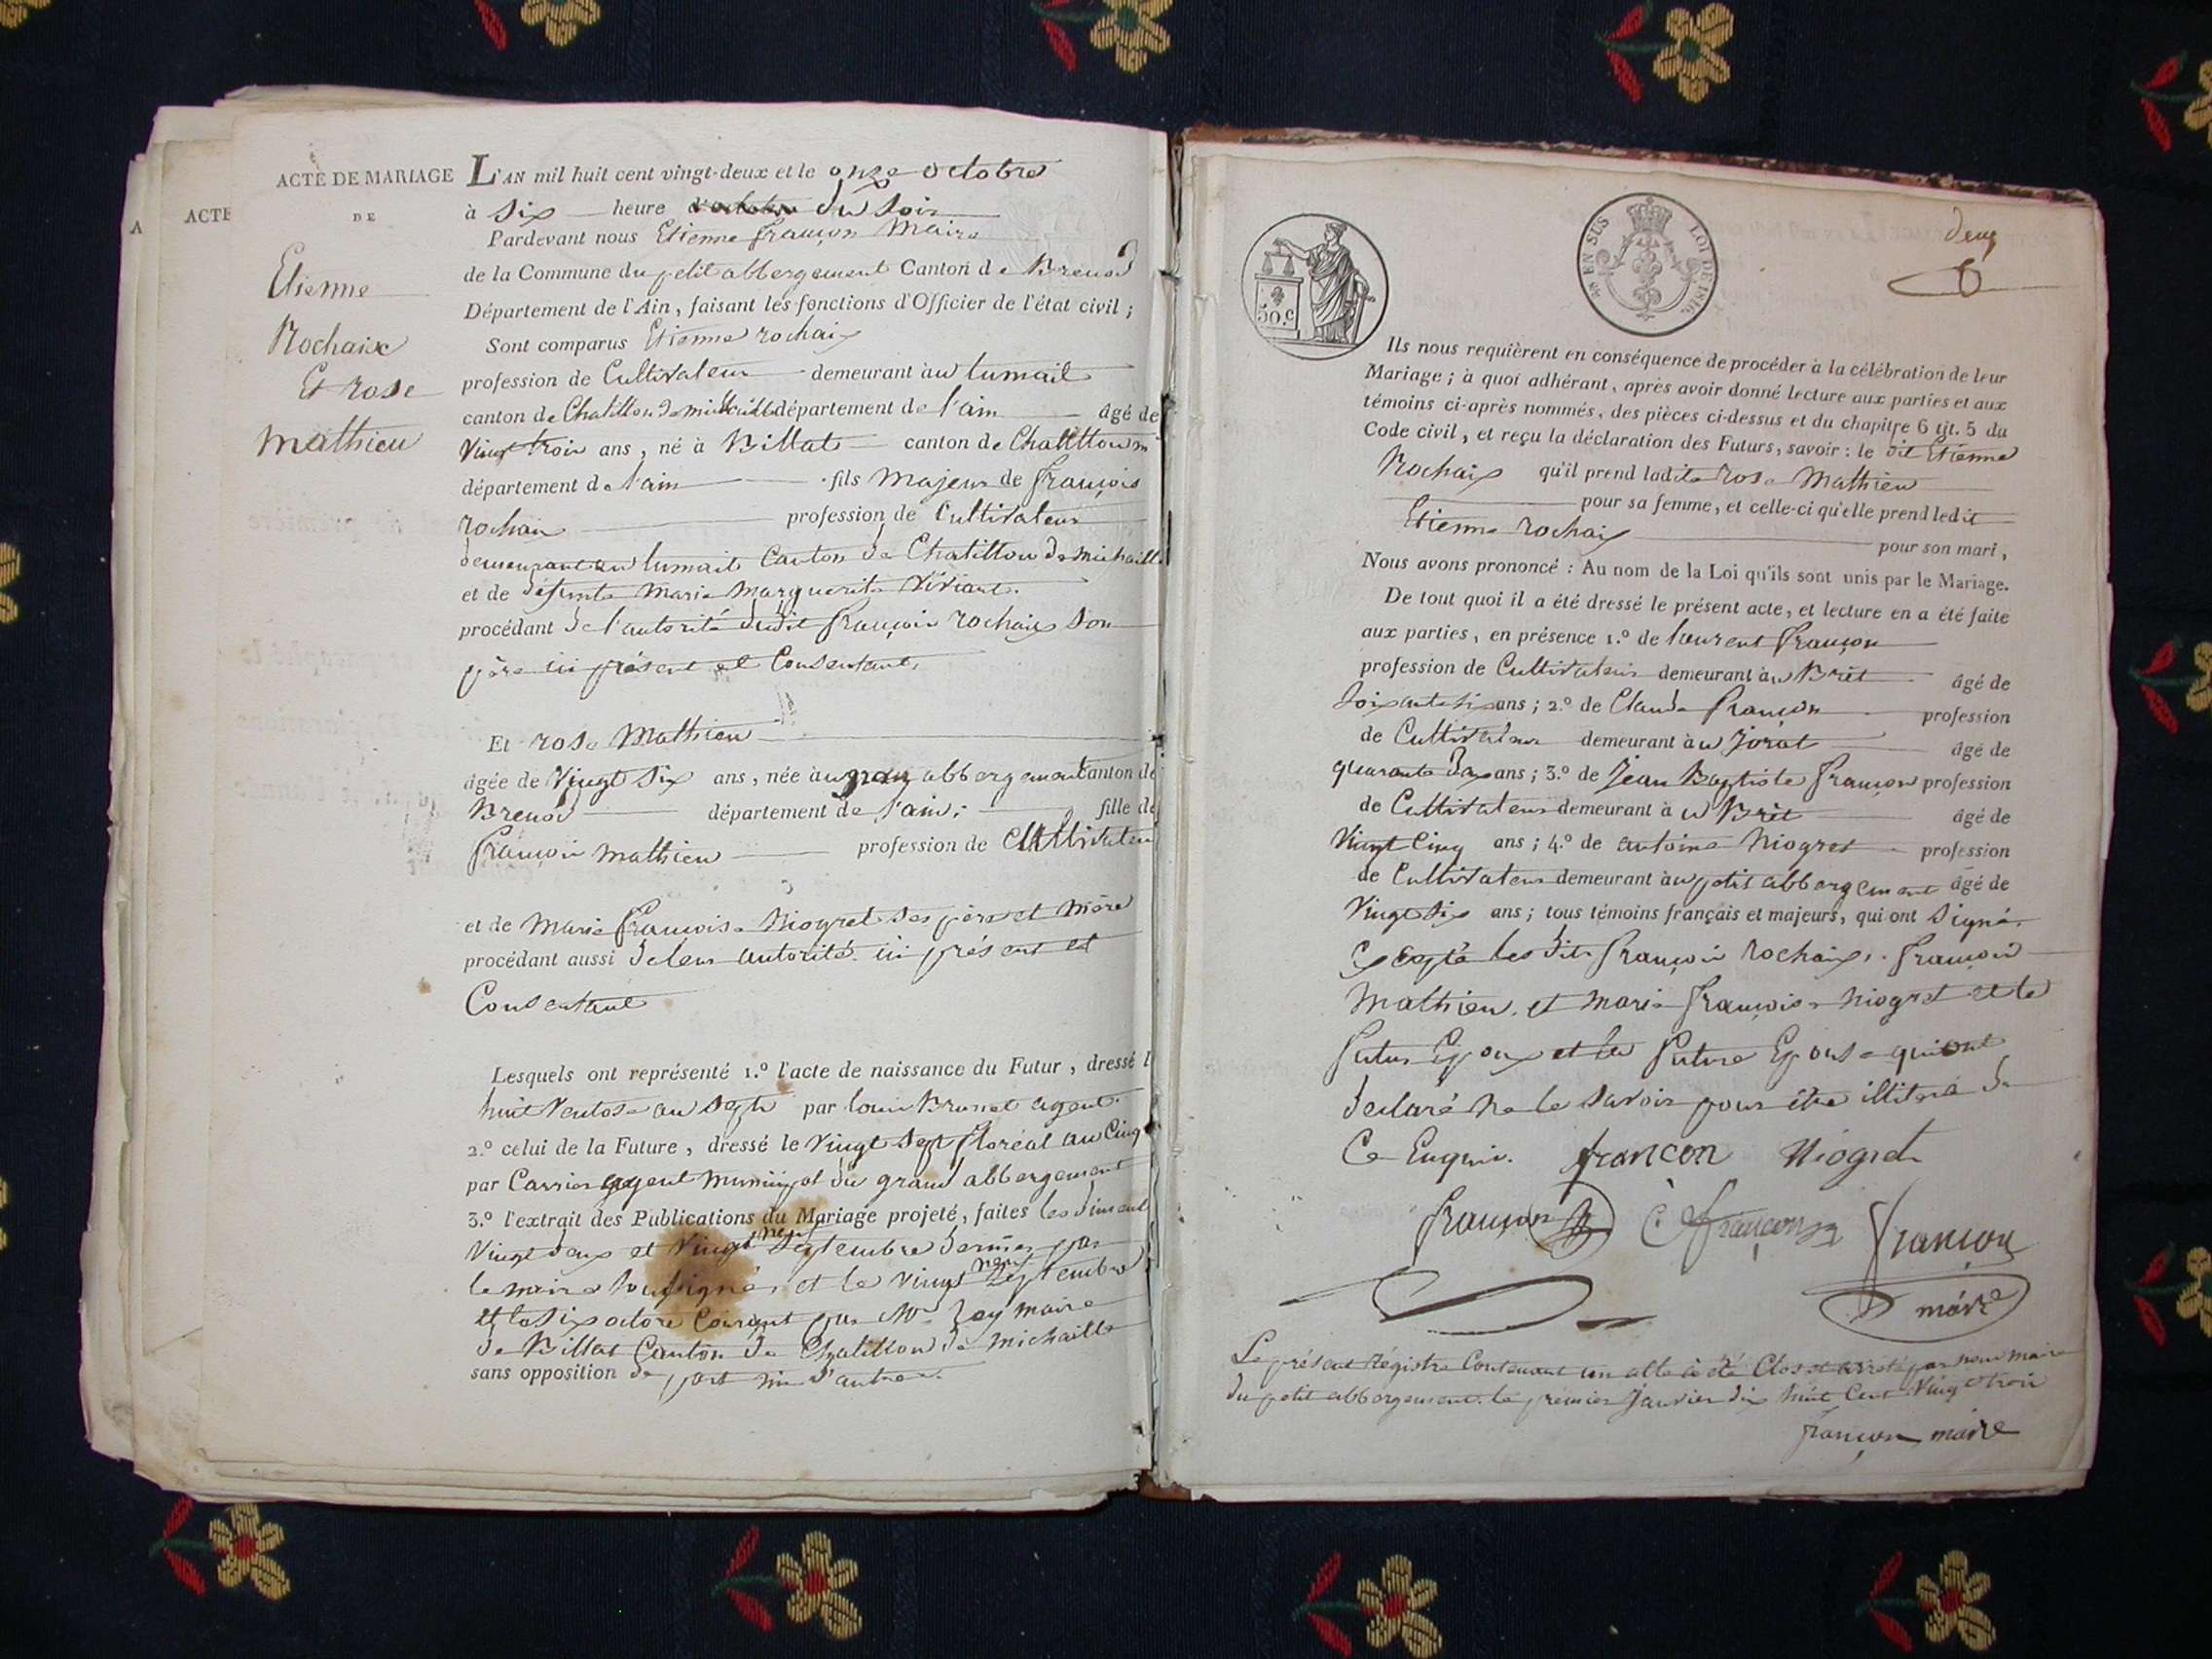 A
ACTE
ACTE DE MARIAGE
DE
Etienne
Rochaix
Et rose
Mathieu
L'AN mil huit cent vingt-deux et le onze octobre
à six heure du soir
Pardevant nous Etienne françon Maire
de la Commune du petit abbergement Canton de Brenod
Département de l'Ain, faisant les fonctions d'Officier de l'état civil ;
Sont comparus Etienne rochaix
profession de Cultivateur demeurant à au tumait
canton de Chatillon de michaille département de l'ain âgé de
Vingt trois ans, né à Billat canton de Chatillon m
département de l'ain fils Majeur de françois
rochaix profession de Cultivateur
demeurant au tumait Canton de Chatillon de michaille
et de défunte Marie Marguerite Viviant.
procédant de l'autorité dudit françois rochaix son
père ici présent et Consentant,
Et rose Mathieu
âgée de Vingt six ans, née à au gran abbergement Canton de
Brenod département de l'ain ; fille de
françois mathieu profession de Cultivateur
et de Marie françoise Niogret ses père et mère
procédant aussi de leur autorité ici présent et
Consentant
Lesquels ont représenté 1.º l'acte de naissance du Futur, dressé l
huit Ventose an sept par louis Brunet agent.
2.º celui de la Future, dressé le Vingt sept floréal an Cinq
par Carrier agent municipal du grand abbergement
3.º l'extrait des Publications du Mariage projeté, faites les dimenl
Vingt deux et Vingt neuf septembre dernier par
le maire soussigné, et le vingt neuf septembre
et le six octore Courant par Mr Rey maire
de Billat Canton de Chatillon de michaille
sans opposition de part ni d'autre.
50.c
EN SUS
LOI DE 1816.
deux
Ils nous requièrent en conséquence de procéder à la célébration de leur
Mariage ; à quoi adhérant, après avoir donné lecture aux parties et aux
témoins ci-après nommés, des pièces ci-dessus et du chapitre 6 tit. 5 du
Code civil, et reçu la déclaration des Futurs, savoir : le dit Etienne
Rochaix qu'il prend ladite rose Mathieu
pour sa femme, et celle-ci qu'elle prend ledit
Etienne rochaix pour son mari,
Nous avons prononcé : Au nom de la Loi qu'ils sont unis par le Mariage.
De tout quoi il a été dressé le présent acte, et lecture en a été faite
aux parties, en présence 1.º de laurent françon
profession de Cultivateur demeurant à au Brét âgé de
soixante six ans ; 2.º de Claude françon profession
de Cultivateur demeurant à au Jorat âgé de
quarante deux ans ; 3.º de Jean Baptiste françon profession
de Cultivateur demeurant à au Brét âgé de
Vingt Cinq ans ; 4.º de antoine Niogret profession
de Cultivateur demeurant à au petit abbergement âgé de
Vingt six ans ; tous témoins français et majeurs, qui ont signé.
Excepté les dits françois rochaix, françois
Mathieu, et marie françoise Niogret et le
futur Epoux et la future Epouse qui ont
déclaré ne le savoir pour être illitéré de
Ce Enquis. françon Niogret
françon C françon françon
maire
Le présent Régistre Contenant un acte à été Clos et arreté par nous maire
du petit abbergement le premier Janvier dix huit Cent Vingt trois
françon maire